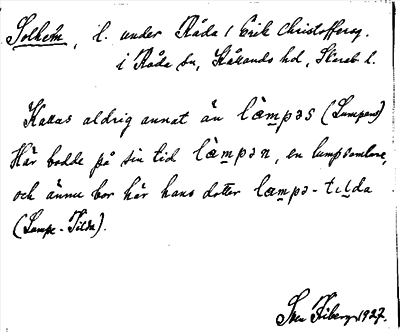 Solhem, l. under Råda, Erik Christoffersg.
i Råda sn, Kållands hd, Skarab. l.
Kallas aldrig annat än lämpəs (Lumpens)
Här bodde på sin tid lämpən, en lumpsamlare,
och ännu bor här hans dotter lampə-tılda
(Lampe-Tilda).
Sven 1927.